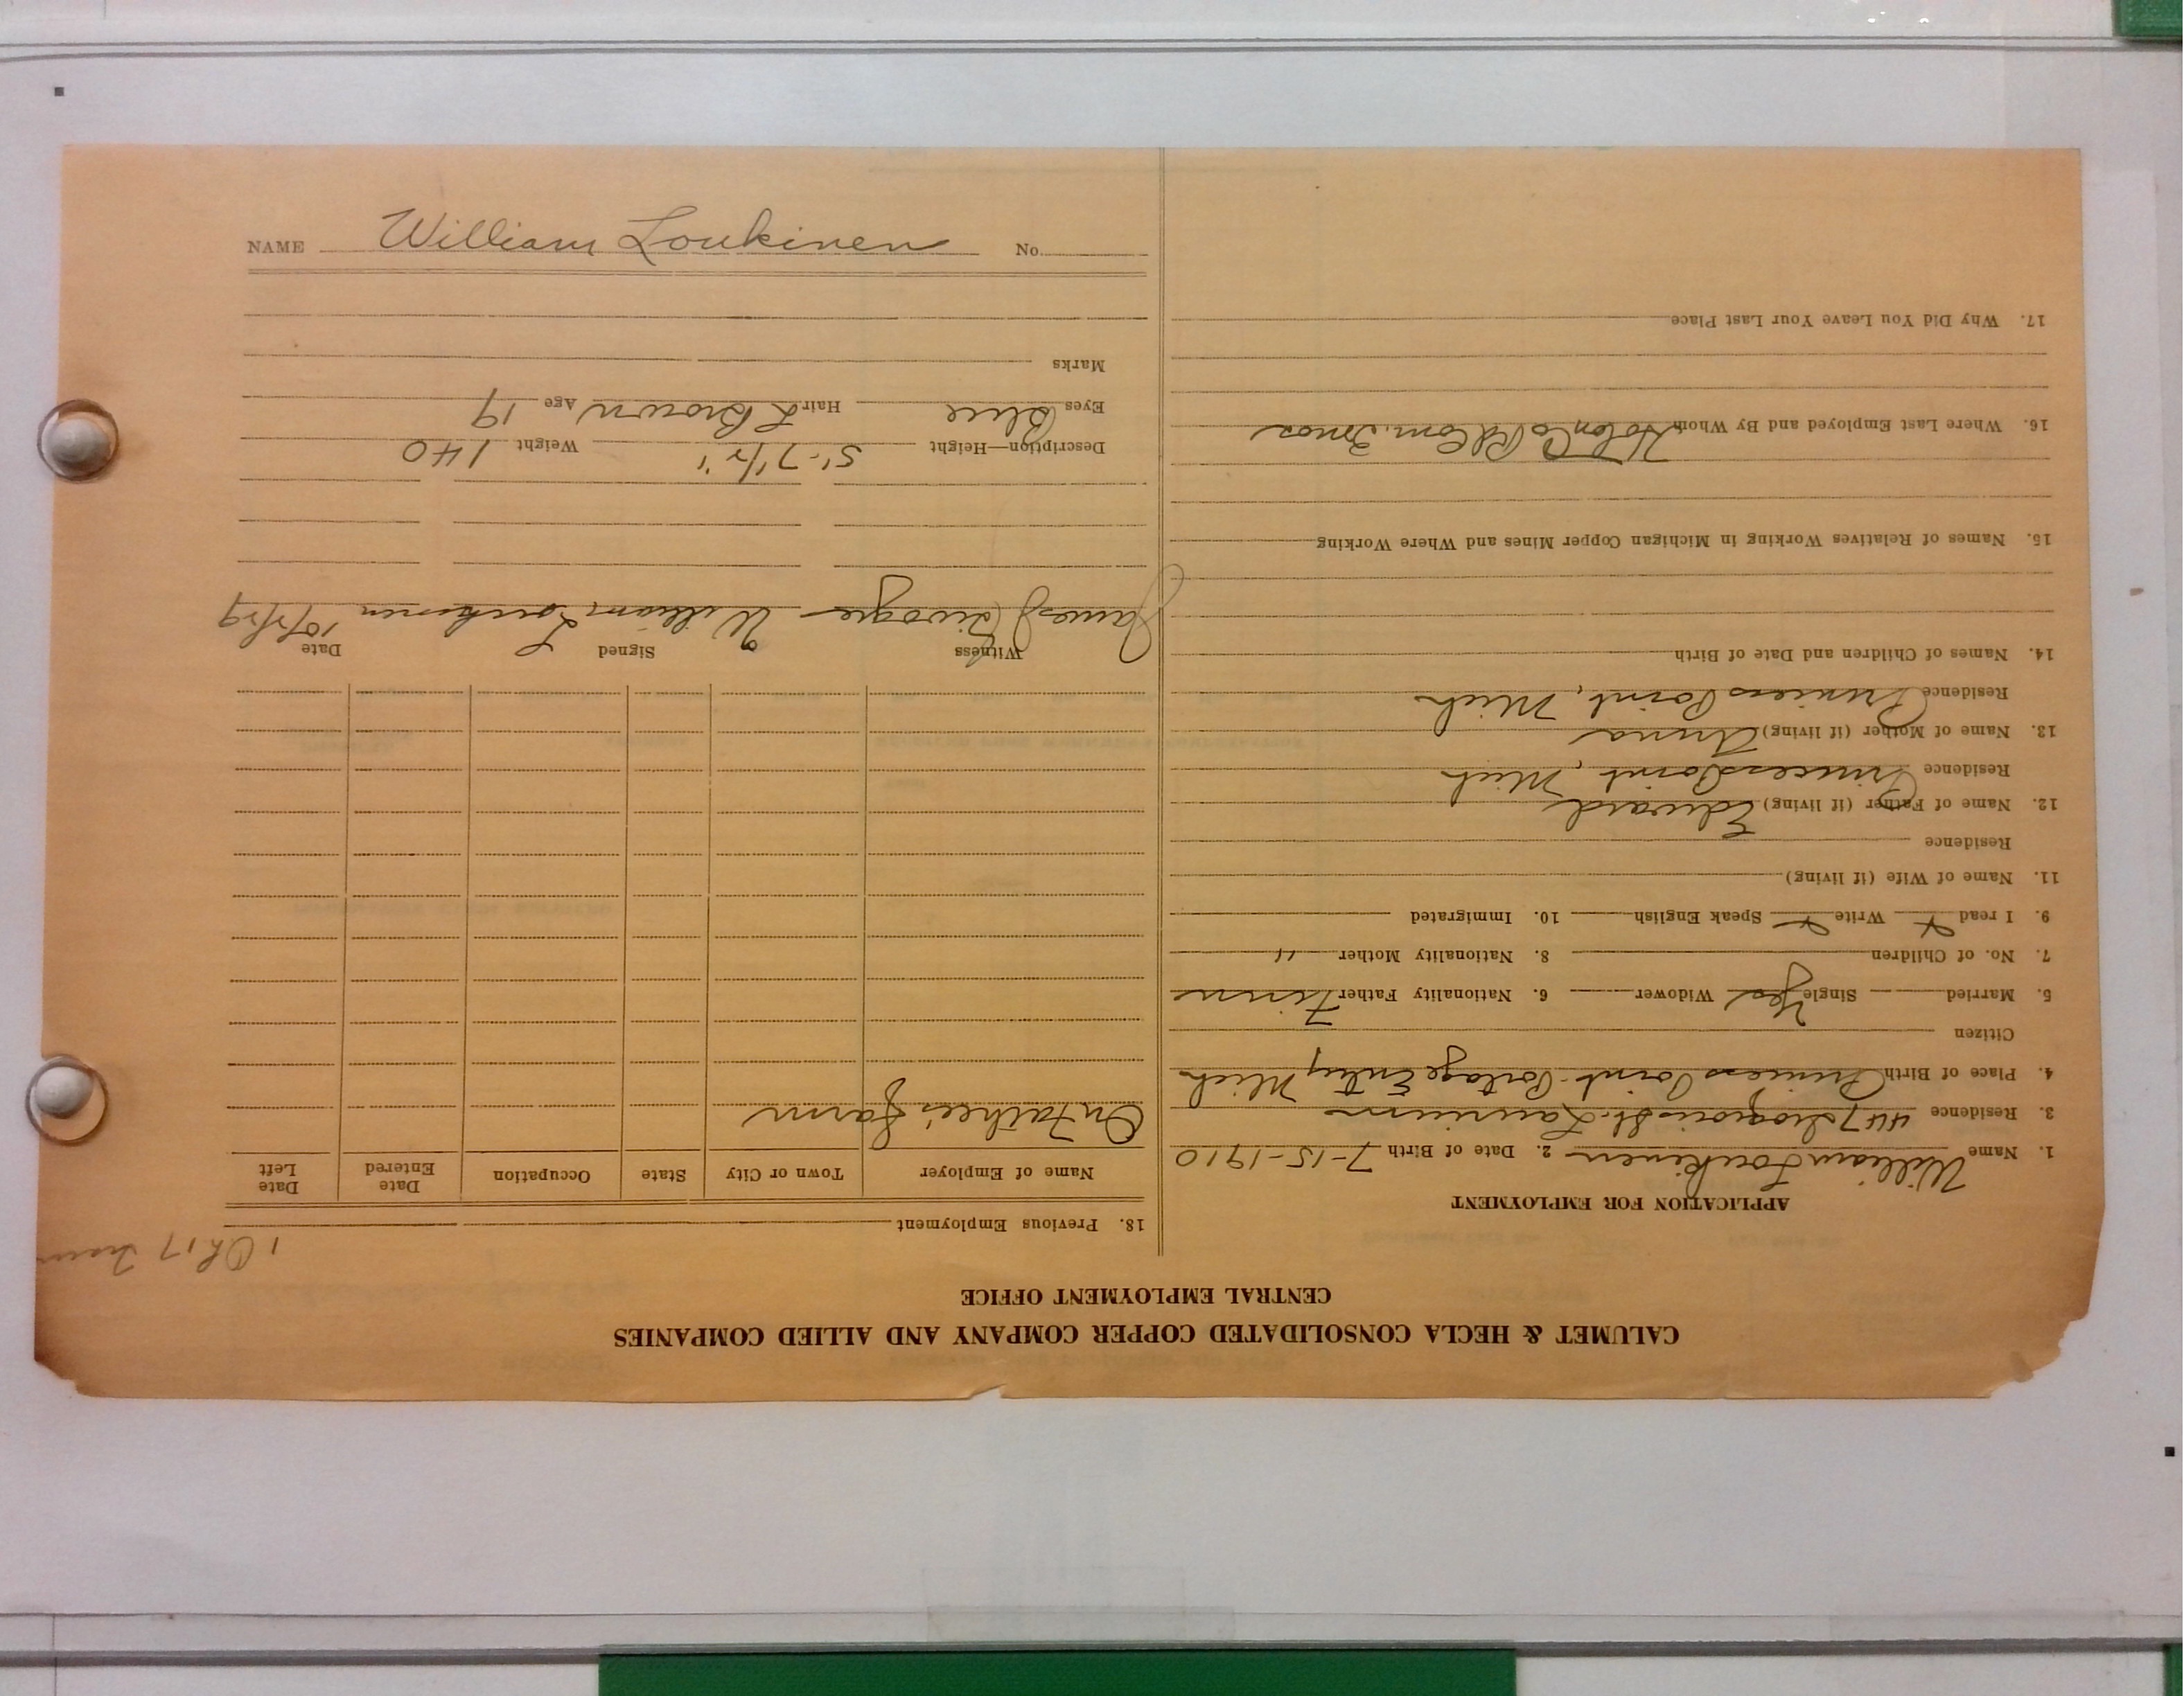 CALUMET & HECLA CONSOLIDATED COPPER COMPANY AND ALLIED COMPANIES
CENTRAL EMPLOYMENT OFFICE
APPLICATION FOR EMPLOYMENT
1. Name William Loukinen 2. Date of Birth 7-15-1910
3. Residence 447 Iroquois St. Laurium
4. Place of Birth Princess Point Portage Entry Mich
Citizen
5. Married Single Yes Widower 6. Nationality Father Finn
7. No. of Children 8. Nationality Mother "
9. I read Write Speak English 10. Immigrated
11. Name of Wife (if living)
Residence
12. Name of Father (if living) Edward
Residence Princess Point, Mich
13. Name of Mother (if living) Anna
Residence Princess Point, Mich
14. Names of Children and Date of Birth
15. Names of Relatives Working in Michigan Copper Mines and Where Working
16. Where Last Employed and By Whom Hoton Co Rd Com.
17. Why Did You Leave Your Last Place
18. Previous Employment
Name of Employer Town or City State Occupation Date Entered Date Left
On Father's farm
Witness Signed Date
James William Loukinen 10/2/29
Description—Height 5'-7 1/2" Weight 140
Eyes Blue Hair L Brown Age 19
Marks
NAME William Loukinen No.